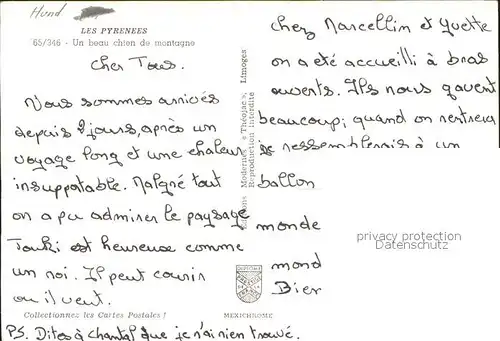 Hund
LES PYRENEES
65/346 - Un beau chien de montagne
Cher Tous.
Nous sommes arrivés
depuis 2 jours, après un
voyage long et une chaleur
insuportable. Malgré tout
on a pu admirer le paysage
Touki est heureuse comme
un roi. Il peut courir
ou il veut.
Collectionnez les Cartes Postales !
PS. Dites à chantal que je n'ai rien trouvé.
Editions Modernes « Théojac », Limoges
Reproduction interdite
MEXICHROME
chez Marcellin et Yvette
on a été accueilli à bras
ouverts. Ils nous gavent
beaucoup; quand on rentrera
je ressemblerais à un
ballon
monde
mond
Bier
privacy protection
Datenschutz